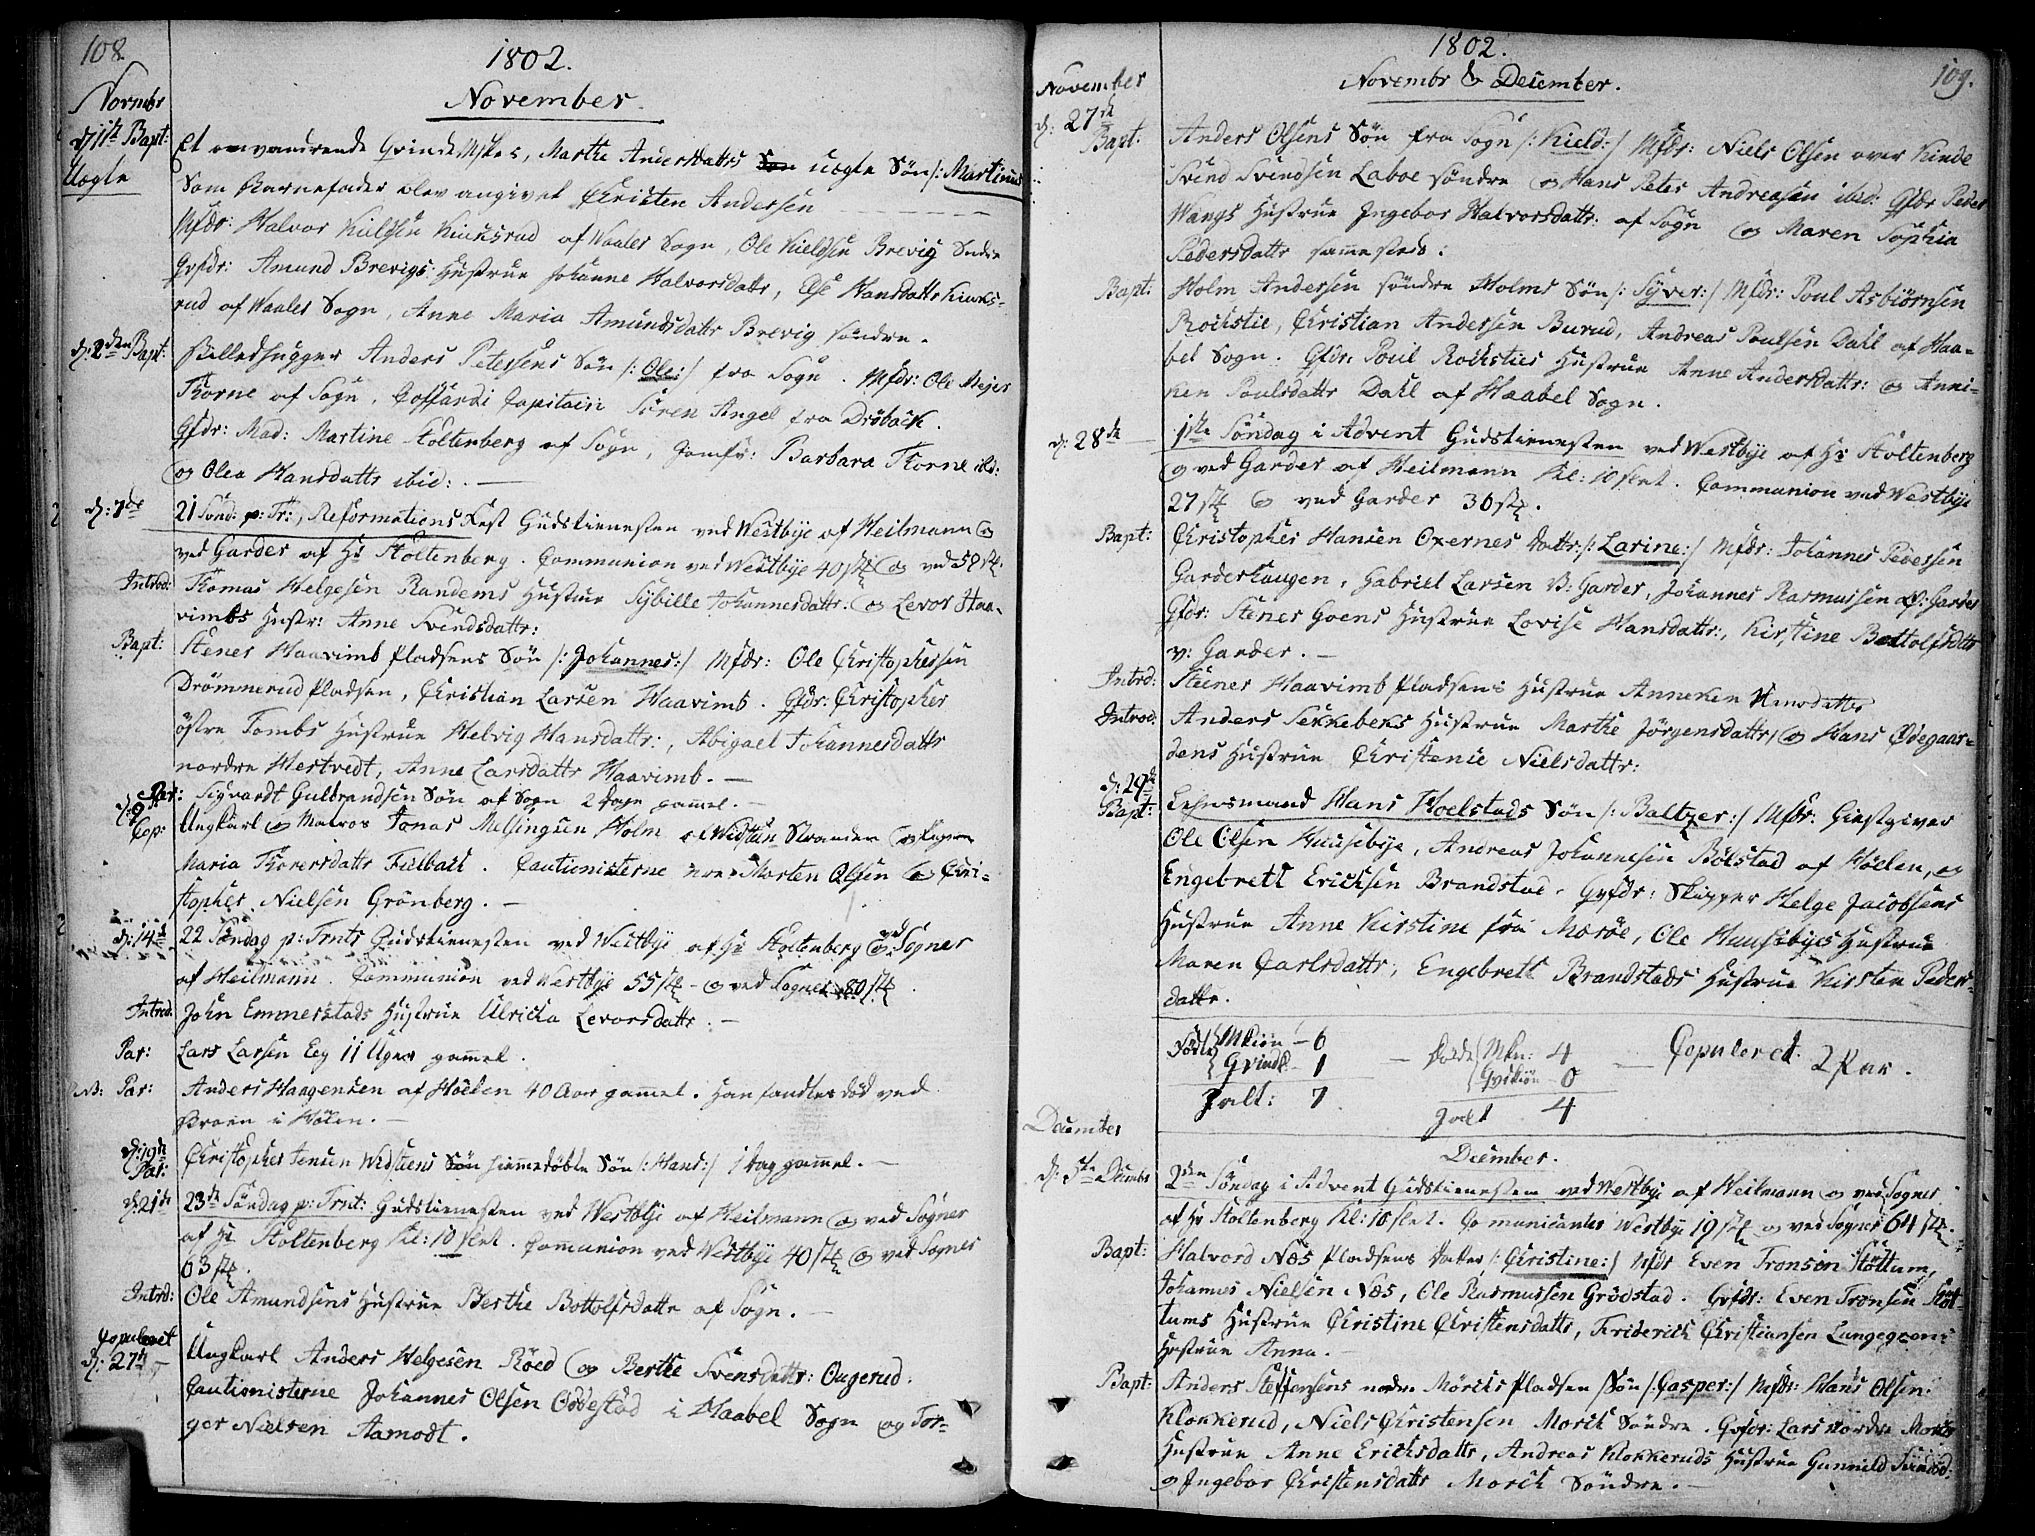 108.
1802.
Novembr
November.
d: 1ste Bapt:
Uægte
Et omvandrende Qvinde Mskes, Marthe Andersdatters uægte Søn /: Martinus
Som Barnefader blev angivet Christen Andersen
Mfdr: Halvor Kield Kinksrud af Waaler Sogn, Ole Kieldsen Brevig Søndre
Qvfdr: Amund Brevigs Hustrue Johanne Halvorsdattr, Else Hansdattr Kinks-
rud af Waaler Sogn, Anne Maria Amundsdattr Brevig søndre.
d: 2den Bapt:
Billedhugger Anders Petersens Søn /: Ole :/ fra Sogn. Mfdr: Ole Mejer
Thorne af Sogn, Coffardi Capitain Sören Angel fra Dröback.
Qfdr: Mad: Martine Stoltenberg af Sogn, Jomfr: Barbara Thorne ibd:
og Olea Hansdattr ibid:.
d: 7de
21 Sönd: p: Tr:, Reformations Fest Gudstienesten ved Westbye af Heilmann og
ved Garder af Hr Stoltenberg. Communion ved Westbye 40 stk og ved 58 stk.
Introd:
Thomas Helgesen Randems Hustrue Sybille Johannesdattr: og Levor Haa-
vimbs Hustr: Anne Svendsdattr:
Bapt:
Stener Haavimb Pladsens Søn /: Johannes :/ Mfdr: Ole Christophersen
Drömnerud Pladsen, Christian Larsen Haavimb. Qfdr: Christopher
östre Tombs Hustrue Helvig Hansdattr:, Abigael Johannesdattr
nordre Hestvedt, Anne Larsdattr Haavimb.
Par:
Sigvardt Gulbrandsen Søn af Sogn 2 dage gammel.
d: 9
Cop:
Ungkarl og Matros Jonas Melsingsen Holm og
Maria Thoresdattr Fielback. Cautionisterne vare Morten Olsen og Chri-
stopher Nielsen Grönberg.
d: 14de
22 Söndag p: Trnts Gudstienesten ved Westbye af Hr Stoltenberg og ved Sogner
af Heilmann. Communion ved Westbye 55 stk og ved Sogner 80 stk.
Introd:
John Emmerstads Hustrue Ulricka Levorsdattr.
Par:
Lars Larsen Eeg 11 Uger gammel.
NB: Par:
Anders Haagensen af Hölen 40 Aar gammel. Han fandtes død ved
Broen i Hölen.
d: 19de
Par:
Christopher Jensen Wedstiens hiemmedøbte Søn /: Hans :/ 1 dag gammel.
d: 21de
23de Söndag p: Trnt: Gudstienesten ved Westbye af Heilmann og ved Sogner
af Hr Stoltenberg Kl: 10 slet. Communion ved Westbye 40 stk og ved Sogner
63 stk.
Introd:
Ole Amundsens Hustrue Berthe Bottolfsdattr af Sogn.
Copuleret
d: 27de
Ungkarl Anders Helgesen Röed og Berthe Svensdattr: Ougerud.
Cautionisterne Johannes Olsen Oddestad i Haabel Sogn og Tor-
ger Nielsen Aamodt.
1802.
109.
November
Novembr & December.
d: 27de
Bapt:
Anders Olsens Søn fra Sogn /: Kield :/ Mfdr: Niels Olsen over Kinde
Svend Svendsen Laboe söndre og Hans Peter Andreasen ibid: Qfdr Peder
Wangs Hustrue Ingebor Halvorsdattr: af Sogn og Maren Sophia
Pedersdattr sammesteds:
Bapt:
Holm Andersen söndre Holms Søn /: Syver :/ Mfdr: Poul Asbiörnsen
Rochstie, Christian Andersen Burud, Andreas Poulsen Dahl af Haa-
bel Sogn. Qfdr: Poul Rochsties Hustrue Anne Andersdattr: og Anni-
ken Poulsdattr Dahl af Haabel Sogn.
d: 28de
1ste Søndag i Advent Gudstienesten ved Westbye af Hr Stoltenberg
og ved Garder af Heilmann Kl: 10 slet. Communion ved Westbye
27 stk og ved Garder 36 stk.
Bapt:
Christopher Hansen Oxernes dattr: /: Larine :/ Mfdr: Johannes Pedersen
Garderhaugen, Gabriel Larsen V: Garder, Johannes Rasmussen Ø: Garder
Qfdr: Stener Goens Hustrue Lovise Hansdattr:, Kirstine Bottolfsdattr
v: Garder.
Introd:
Steiner Haavimb Pladsens Hustrue Anneken Hansdatter
Introd:
Anders Sekkebeks Hustrue Marthe Jörgensdattr, og Hans Ødegaar-
dens Hustrue Christense Nielsdattr:
d: 29de
Bapt:
Lehnsmand Hans Hoelstads Søn /: Baltzer :/ Mfdr: Giestgiver
Ole Olsen Huusebye, Andreas Johannesen Bölstad af Hölen, og
Engebrett Ericksen Brandstad. Qvfdr: Skipper Helge Jacobsens
Hustrue Anne Kirstine fra Mosöe, Ole Huusebyes Hustrue
Maren Carlsdattr, Engebrett Brandstads Hustrue Kirsten Peders-
dattr.
Fødte Mkiön - 6
Qvindk - 1
Jalt: 7
Døde Mkn: 4
Qvdkiön - 0
Jalt 4
Copuleret 2 Par.
December
December.
d: 5te Decembr
2den Søndag i Advent Gudstienesten ved Westbye af Heilmann og ved Sogner
af Hr Stoltenberg Kl: 10 slet. Communicanter Westbye 19 stk og ved Sogner 64 stk.
Bapt:
Halvord Næs Pladsens datter /: Christine :/ Mfdr Even Tronsen Stöttum,
Johannes Nielsen Næs, Ole Rasmussen Grödstad. Qvfdr: Even Tronsen Stöt-
tums Hustrue Christine Christensdattr, Friderich Christiansen
Hustrue Anna.
Bapt:
Anders Steffensens nordre Mörcks Pladsen Søn /: Casper :/ Mfdr: Hans Olsen
Klokkerud, Niels Christensen Morck Söndre. Qvfdr: Lars nordre Morcks
Hustrue Anne Ericksdattr, Andreas Klokkeruds Hustrue Gunnild
og Ingebor Christensdattr Morck Söndre.